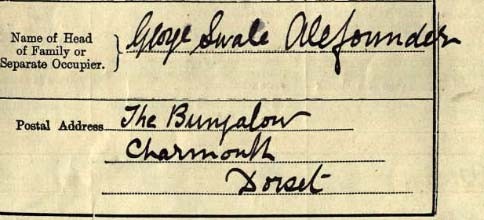 Name of Head
of Family or
Separate Occupier.
George Swale Alefounder
Postal Address
The Bungalow
Charmouth
Dorset